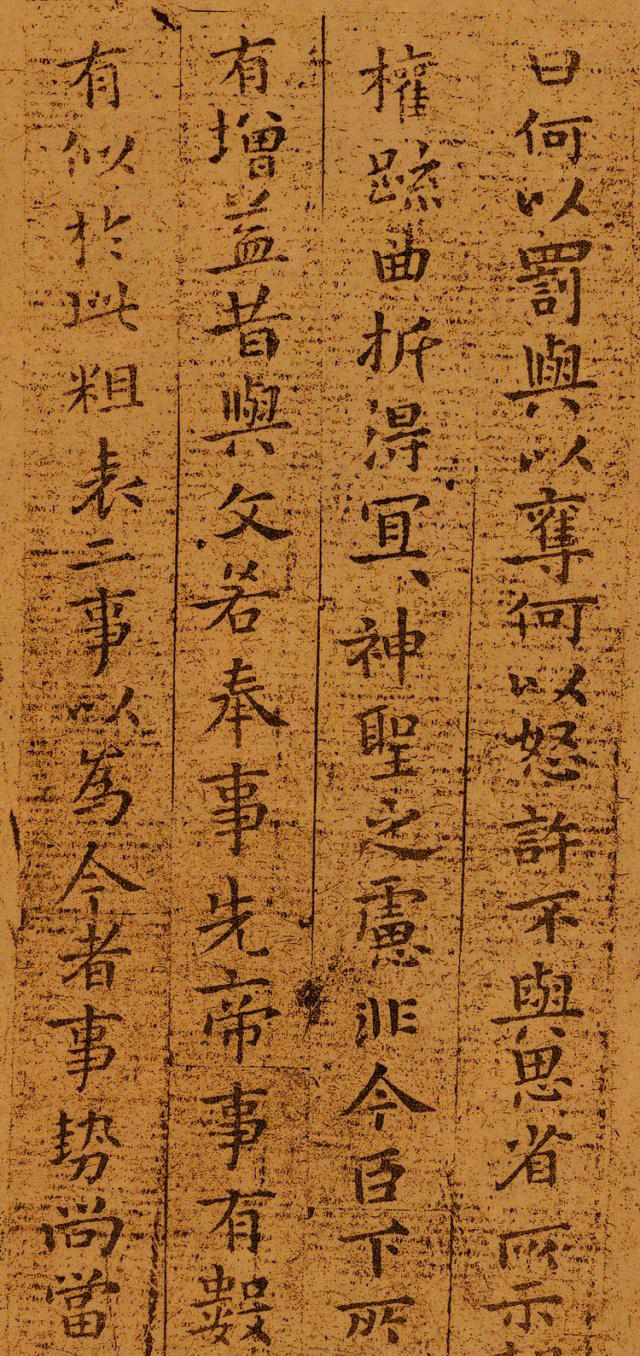 曰何以罰與以奪何以怒許不與思省所示
權疏曲折得宜、神聖之慮非今臣下所
有增益昔與文若奉事先帝事有數
有似於此粗表二事以為今者事勢尚當